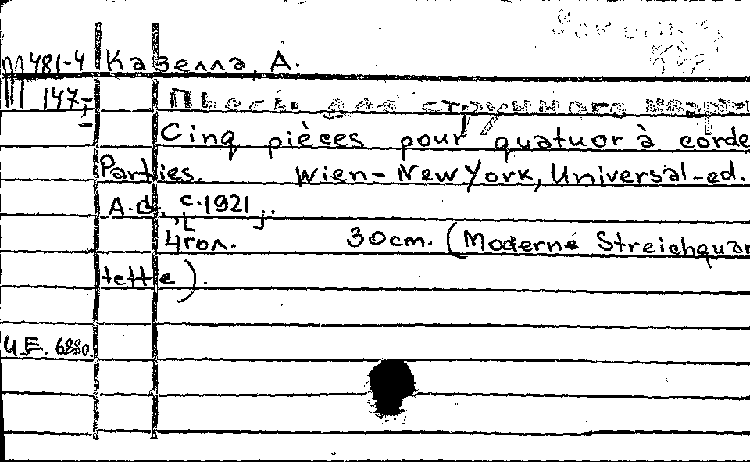 М 481-4 Казелла, А.
147-I Пьесы для струнного
Cinq pièces pour quatuor à corde
Parties. Wien-New York, Universal-ed.
A.G., [c.1921].
4 гол. 30cm. (Moderne Streichquar
tette).
U.E. 6880.